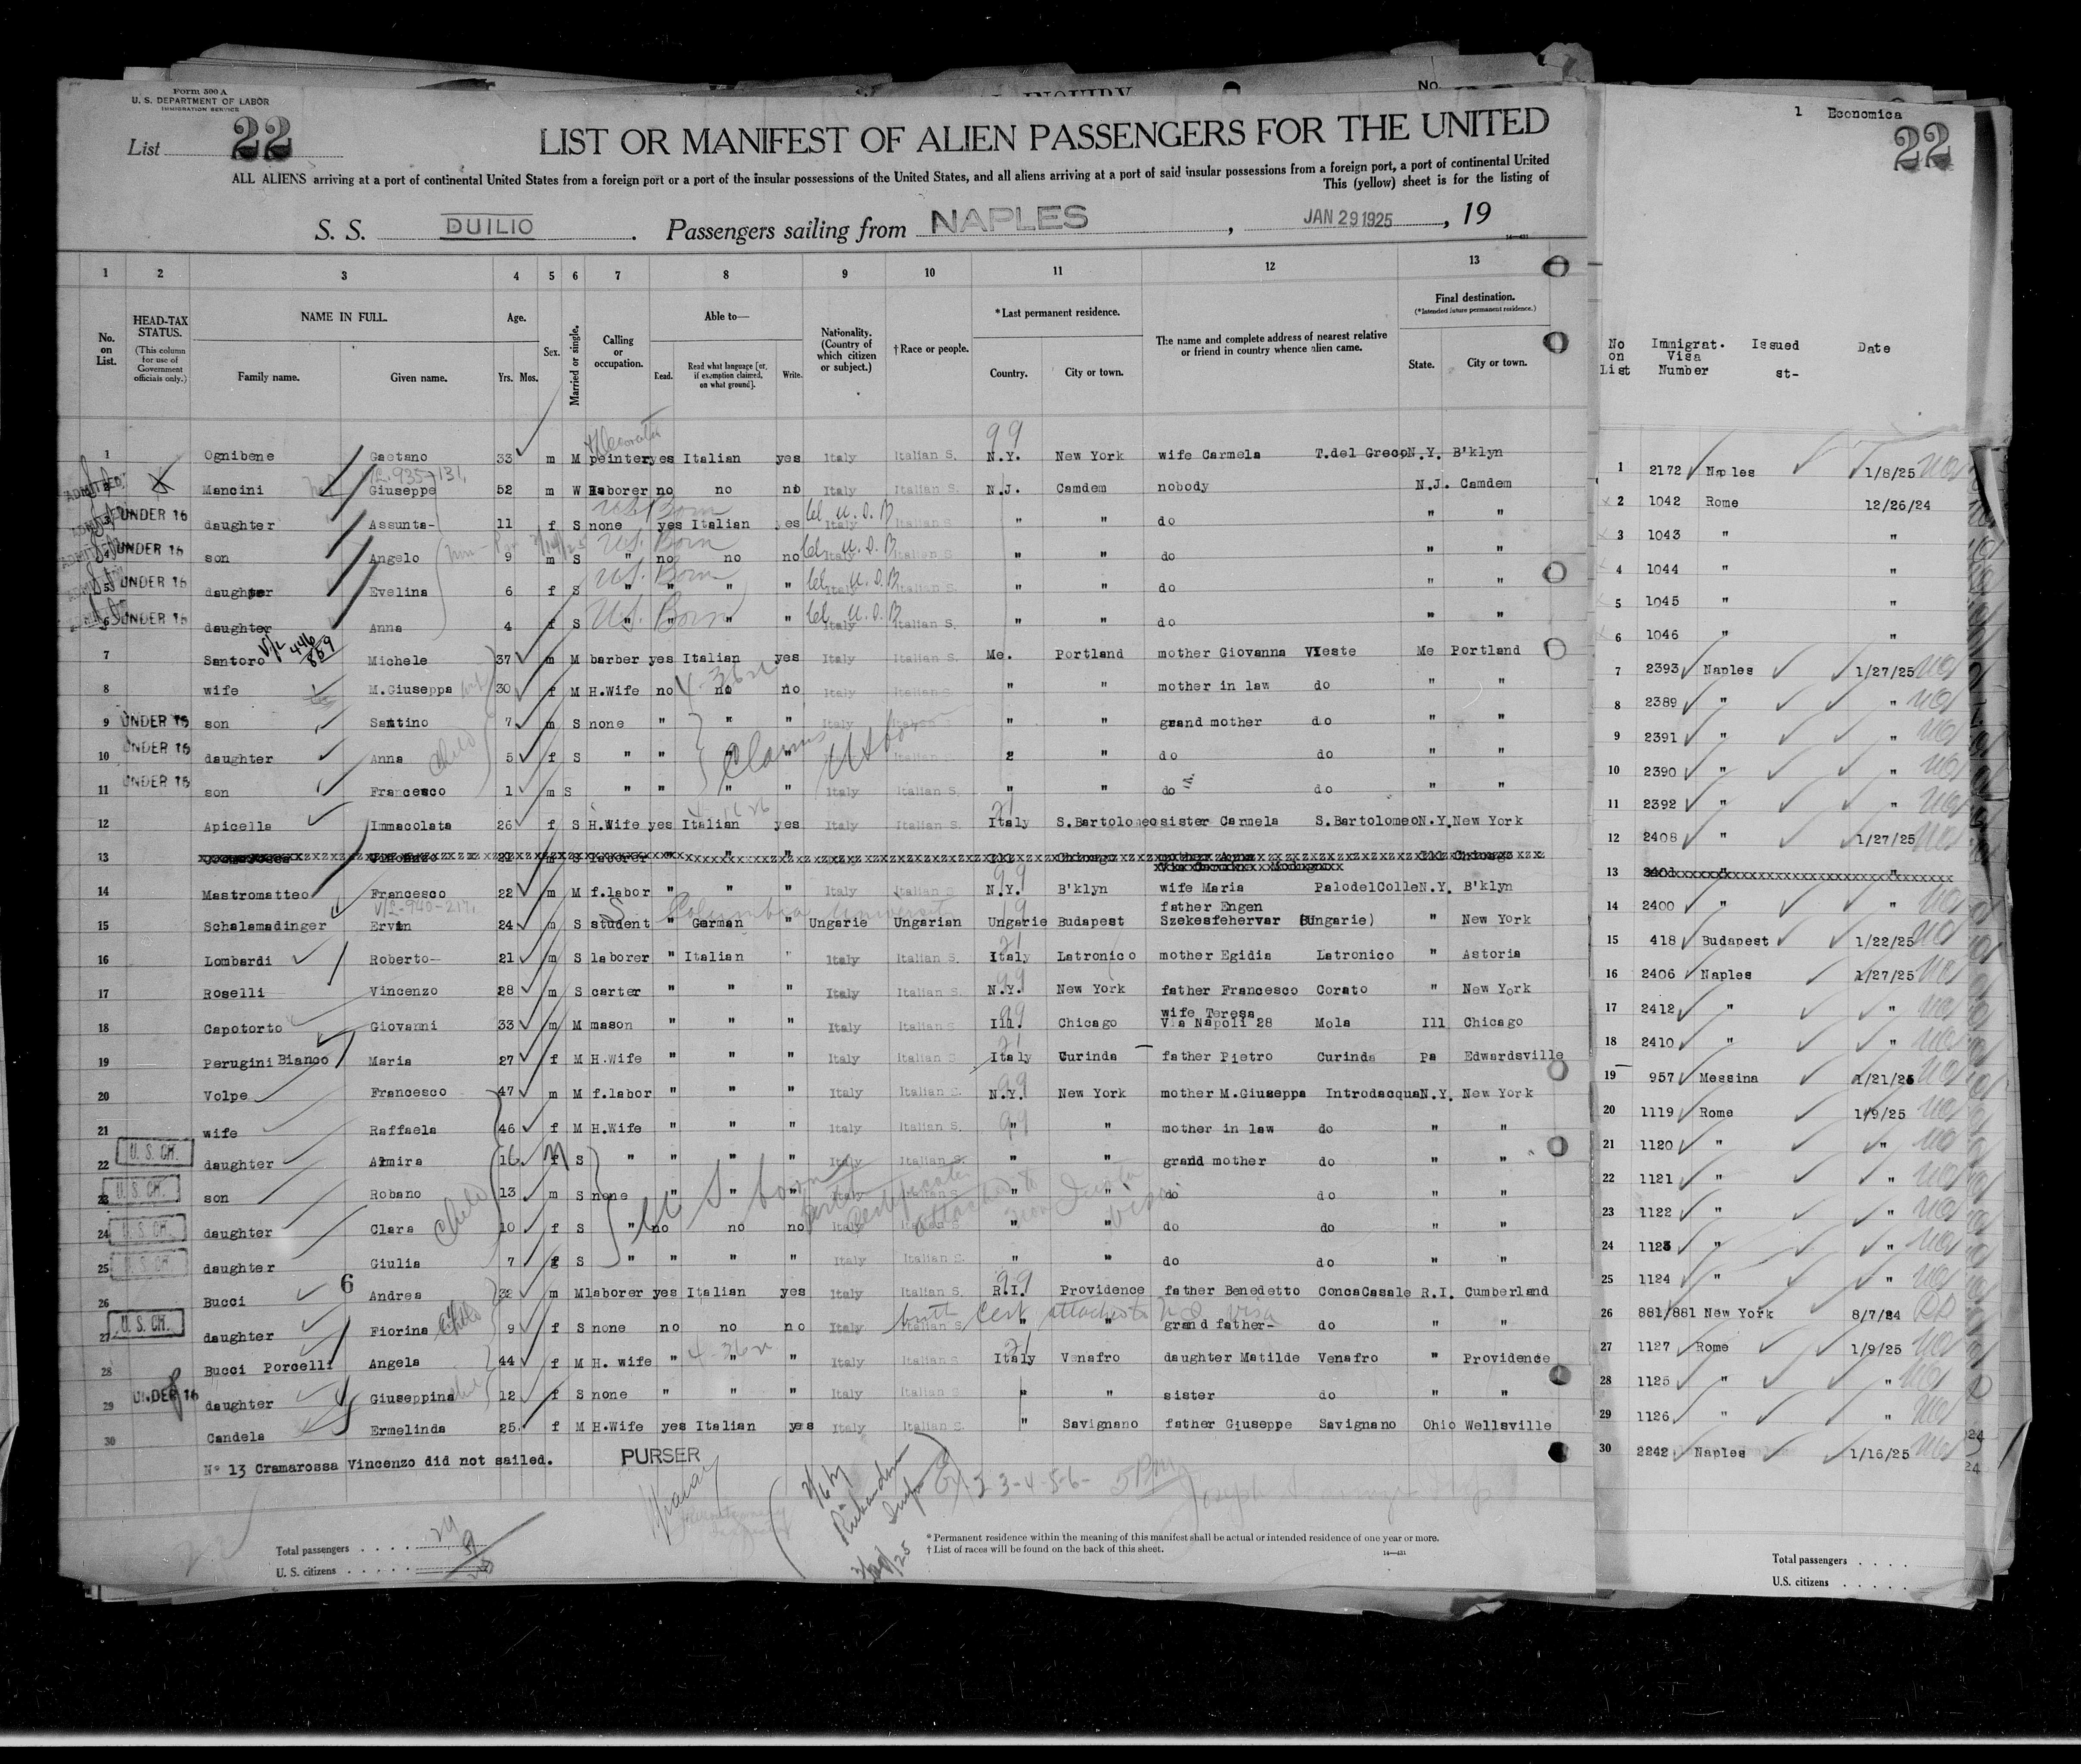 INQUIRY
No.
Form 500 A
U. S. DEPARTMENT OF LABOR
IMMIGRATION SERVICE
List 22
LIST OR MANIFEST OF ALIEN PASSENGERS FOR THE UNITED
ALL ALIENS arriving at a port of continental United States from a foreign port or a port of the insular possessions of the United States, and all aliens arriving at a port of said insular possessions from a foreign port, a port of continental United
This (yellow) sheet is for the listing of
S. S. DUILIO. Passengers sailing from NAPLES, JAN 29 1925, 19
14—431
1 2 3 4 5 6 7 8 9 10 11 12 13
No. on List.
HEAD-TAX STATUS. (This column for use of Government officials only.)
NAME IN FULL. Family name. Given name.
Age. Yrs. Mos.
Sex.
Married or single.
Calling or occupation.
Able to— Read. Read what language [or, if exemption claimed, on what ground]. Write.
Nationality. (Country of which citizen or subject.)
†Race or people.
*Last permanent residence. Country. City or town.
The name and complete address of nearest relative or friend in country whence alien came.
Final destination. (*Intended future permanent residence.) State. City or town.
99
1 Ognibene Gaetano 33 m M peinter yes Italian yes Italy Italian S. N.Y. New York wife Carmela T.del Greco N.Y. B'klyn
ADMITTED 2 Mancini Giuseppe 52 m W laborer no no no Italy Italian S. N.J. Camdem nobody N.J. Camdem
US Born
3 UNDER 16 daughter Assunta 11 f S none yes Italian yes Italy Italian S. " " do " "
US. Born
4 UNDER 16 son Angelo 9 m S " no no no Italy Italian S. " " do " "
US. Born
5 UNDER 16 daughter Evelina 6 f S " " " " Italy Italian S. " " do " "
US. Born
6 UNDER 16 daughter Anna 4 f S " " " " Italy Italian S. " " do " "
7 Santoro Michele 37 m M barber yes Italian yes Italy Italian S. Me. Portland mother Giovanna Vieste Me Portland
8 wife M.Giuseppa 30 f M H.Wife no no no Italy Italian S. " " mother in law do " "
9 UNDER 16 son Santino 7 m S none " " " Italy Italian " " grand mother do " "
10 UNDER 16 daughter Anna child 5 f S " " " " Italian S. " do do " "
claims US born
11 UNDER 16 son Francesco 1 m S " " " " Italy Italian S. " " do do " "
12 Apicella Immacolata 26 f S H.Wife yes Italian yes Italy Italian S. Italy S.Bartolomeo sister Carmela S.Bartolomeo N.Y. New York
13 laborer Chicago mother Anna Ill Chicago
14 Mastromatteo Francesco 22 m M f.labor " " " Italy Italian S. N.Y. B'klyn wife Maria PalodelColle N.Y. B'klyn
Columbia University
15 Schalamadinger Ervin 24 m S student " German " Ungarie Ungarian Ungarie Budapest father Engen Szekesfehervar (Ungarie) " New York
16 Lombardi Roberto 21 m S laborer " Italian " Italy Italian S. Italy Latronico mother Egidia Latronico " Astoria
17 Roselli Vincenzo 28 m S carter " " " Italy Italian S. N.Y. New York father Francesco Corato " New York
18 Capotorto Giovanni 33 m M mason " " " Italy Italian S. Ill. Chicago wife Teresa Via Napoli 28 Mola Ill Chicago
19 Perugini Bianco Maria 27 f M H.Wife " " " Italy Italian S Italy Curinda father Pietro Curinda Pa Edwardsville
20 Volpe Francesco 47 m M f.labor " " " Italy Italian S. N.Y. New York mother M.Giuseppa Introdacqua N.Y. New York
21 wife Raffaela 46 f M H.Wife " " " Italy Italian S. " " mother in law do " "
22 U. S. CIT. daughter Almira 16 f S " " " " Italy Italian S. " " grand mother do " "
23 U. S. CIT. son Robano 13 m S none " " " Italian S. " " do do " "
U S born birth certificates attached to
24 U. S. CIT. daughter Clara child 10 f S " no no no Italy Italian S. " " do do " "
25 U. S. CIT. daughter Giulia 7 f S " " " " Italy Italian S. " " do do " "
6
26 Bucci Andrea 32 m M laborer yes Italian yes Italy Italian S. R.I. Providence father Benedetto ConcaCasale R.I. Cumberland
birth Cert attached to visa
27 U. S. CIT. daughter Fiorina child 9 f S none no no no Italy Italian S. " " grand father do " "
28 Bucci Porcelli Angela 44 f M H. wife " " " Italy Italian S. Italy Venafro daughter Matilde Venafro " Providence
29 UNDER 16 daughter Giuseppina 12 f S none " " " Italy Italian S. " " sister do " "
30 Candela Ermelinda 25 f M H.Wife yes Italian yes Italy Italian S. " Savignano father Giuseppe Savignano Ohio Wellsville
N° 13 Cramarossa Vincenzo did not sailed.
PURSER
Total passengers . . . .
U. S. citizens . . . . .
* Permanent residence within the meaning of this manifest shall be actual or intended residence of one year or more.
† List of races will be found on the back of this sheet.
14—431
1 Economica
22
No on List Immigrat. Visa Number Issued st- Date
1 2172 Naples 1/8/25
2 1042 Rome 12/26/24
3 1043 " "
4 1044 " "
5 1045 " "
6 1046 " "
7 2393 Naples 1/27/25
8 2389 " "
9 2391 " "
10 2390 " "
11 2392 " "
12 2408 " 1/27/25
13 2401 " "
14 2400 " "
15 418 Budapest 1/22/25
16 2406 Naples 1/27/25
17 2412 " "
18 2410 " "
19 957 Messina 1/21/25
20 1119 Rome 1/9/25
21 1120 " "
22 1121 " "
23 1122 " "
24 1123 " "
25 1124 " "
26 881/881 New York 8/7/24
27 1127 Rome 1/9/25
28 1125 " "
29 1126 " "
30 2242 Naples 1/16/25
Total passengers . . . .
U.S. citizens . . . . .